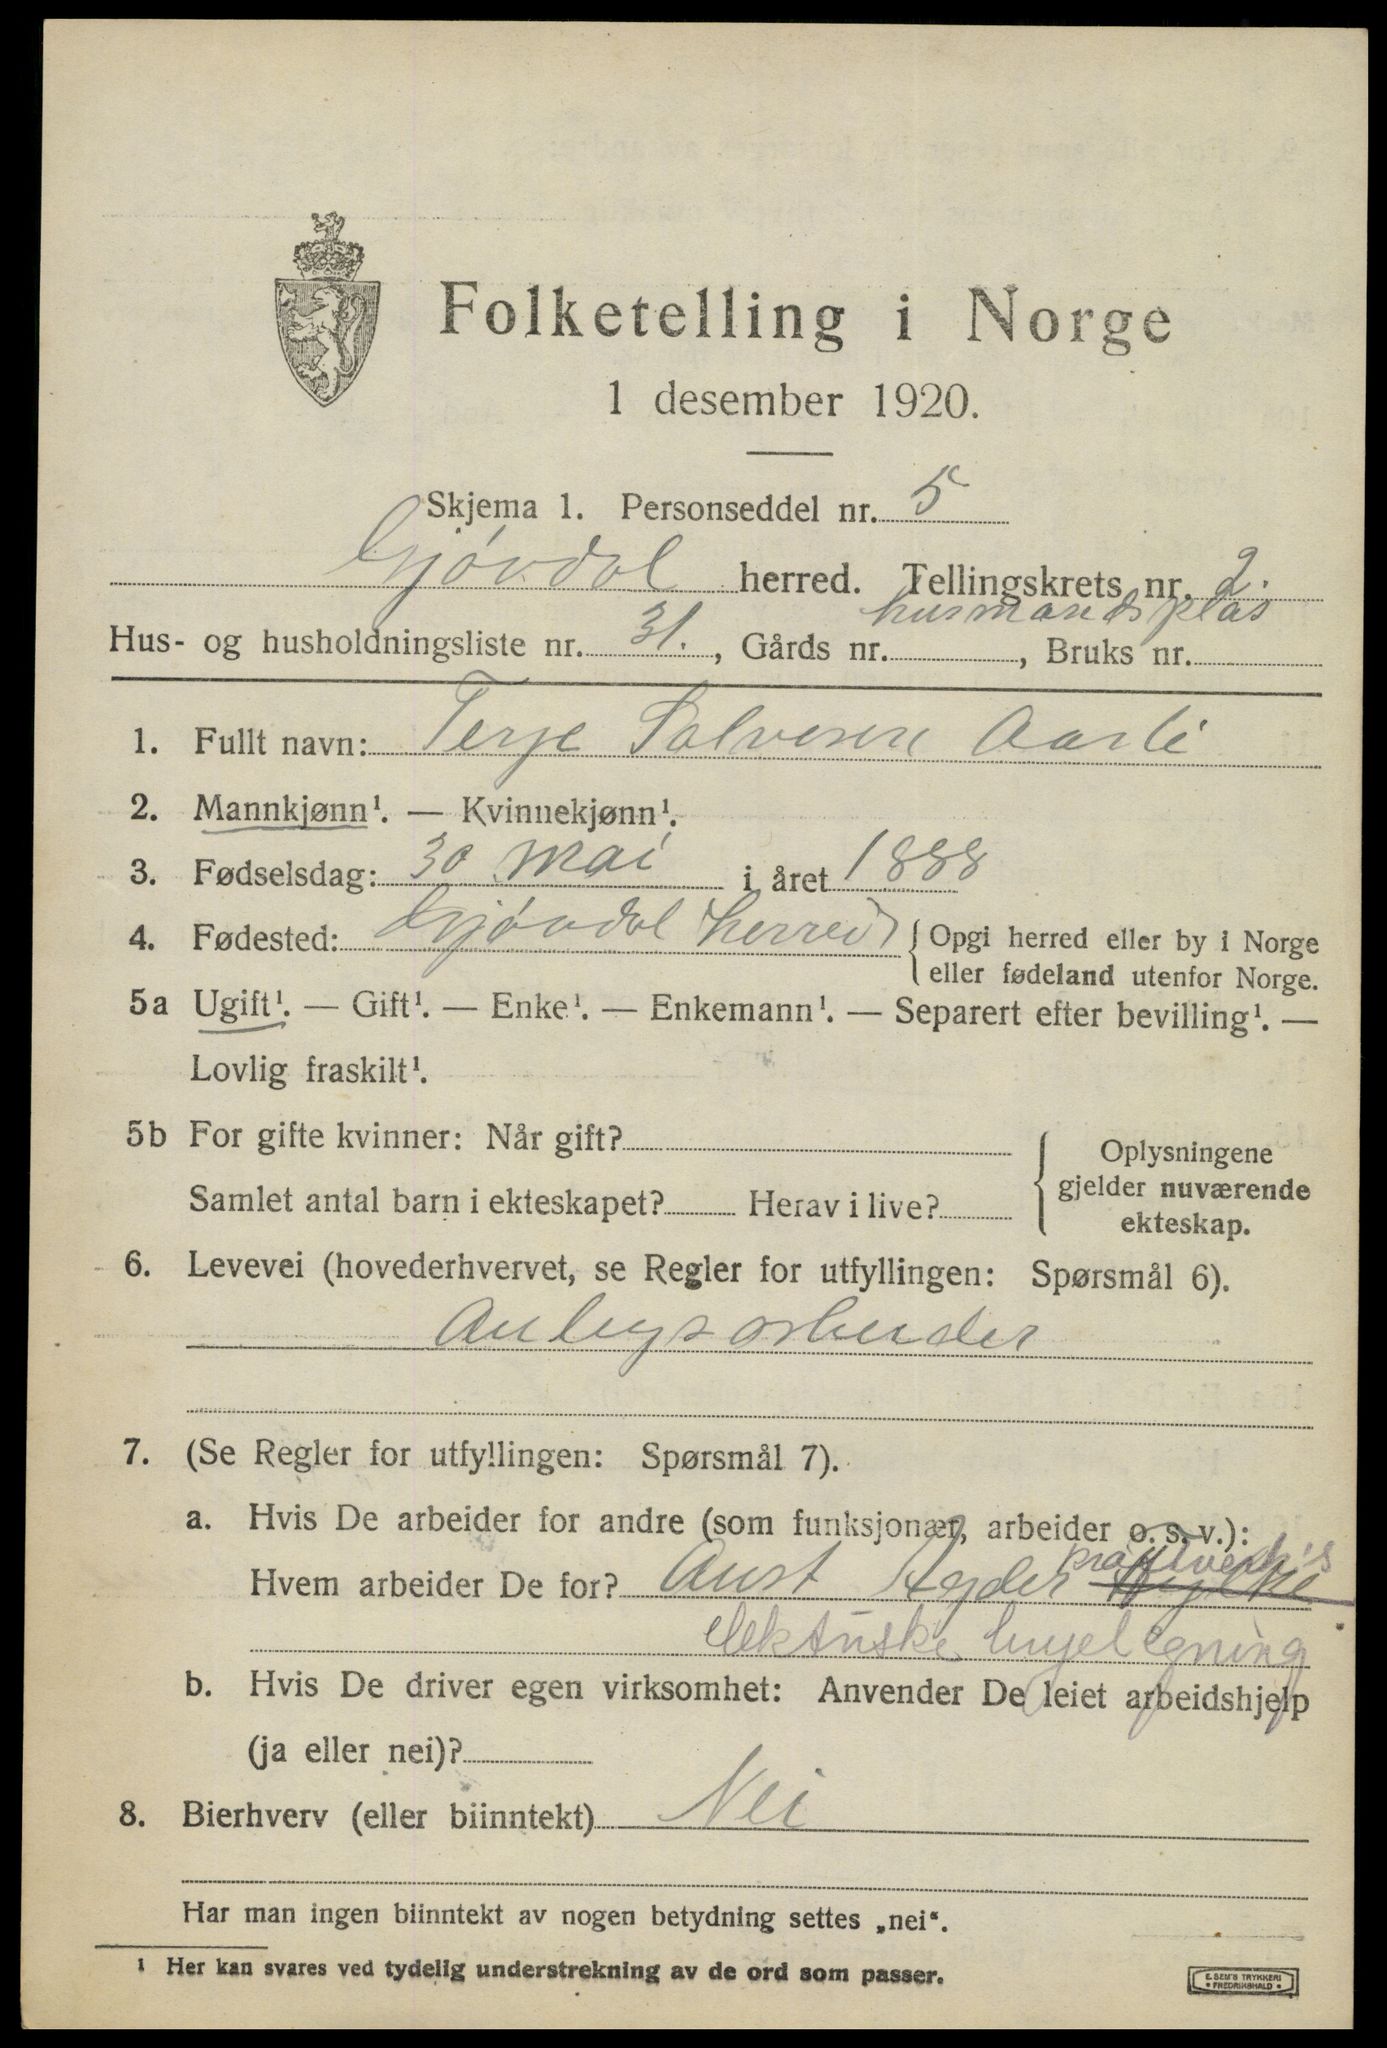 Folketelling i Norge
1 desember 1920.
Skjema 1. Personseddel nr. 5
Gjövdal herred. Tellingskrets nr. 2.
husmandsplas
Hus- og husholdningsliste nr. 31., Gårds nr. , Bruks nr.
1. Fullt navn: Terje Salvesen Aarli
2. Mannkjønn¹. — Kvinnekjønn¹.
3. Fødselsdag: 30 mai i året 1888
4. Fødested: Gjövdal herred { Opgi herred eller by i Norge
eller fødeland utenfor Norge.
5a Ugift¹. — Gift¹. — Enke¹. — Enkemann¹. — Separert efter bevilling¹. —
Lovlig fraskilt¹.
5b For gifte kvinner: Når gift? { Oplysningene
gjelder nuværende
ekteskap.
Samlet antal barn i ekteskapet? Herav i live?
6. Levevei (hovederhvervet, se Regler for utfyllingen: Spørsmål 6).
Anlegsarbeider
7. (Se Regler for utfyllingen: Spørsmål 7).
a. Hvis De arbeider for andre (som funksjonær, arbeider o. s. v.):
Hvem arbeider De for? Aust Agder Fylke
elektriske
b. Hvis De driver egen virksomhet: Anvender De leiet arbeidshjelp
(ja eller nei)?
8. Bierhverv (eller biinntekt) Nei
Har man ingen biinntekt av nogen betydning settes „nei“.
¹ Her kan svares ved tydelig understrekning av de ord som passer.
E. SEM'S TRYKKERI
• FREDRIKSHALD •